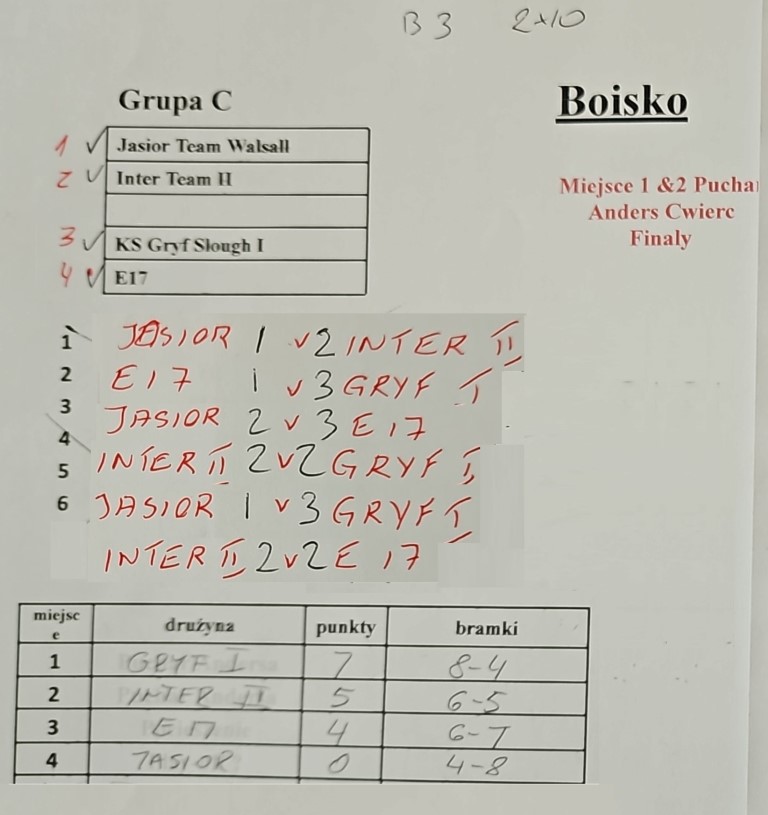 B 3 2x10
Grupa C
Boisko
1 ✓ Jasior Team Walsall
2 ✓ Inter Team II
3 ✓ KS Gryf Slough I
4 ✓ E17
Miejsce 1 &2 Puchar
Anders Cwierc
Finaly
1 JASIOR 1 v 2 INTER II
2 E17 1 v 3 GRYF I
3 JASIOR 2 v 3 E17
4 INTER II 2 v 2 GRYF I
5 JASIOR 1 v 3 GRYF I
6 INTER II 2 v 2 E 17
miejsc
e drużyna punkty bramki
1 GRYF I 7 8-4
2 INTER II 5 6-5
3 E17 4 6-7
4 JASIOR 0 4-8